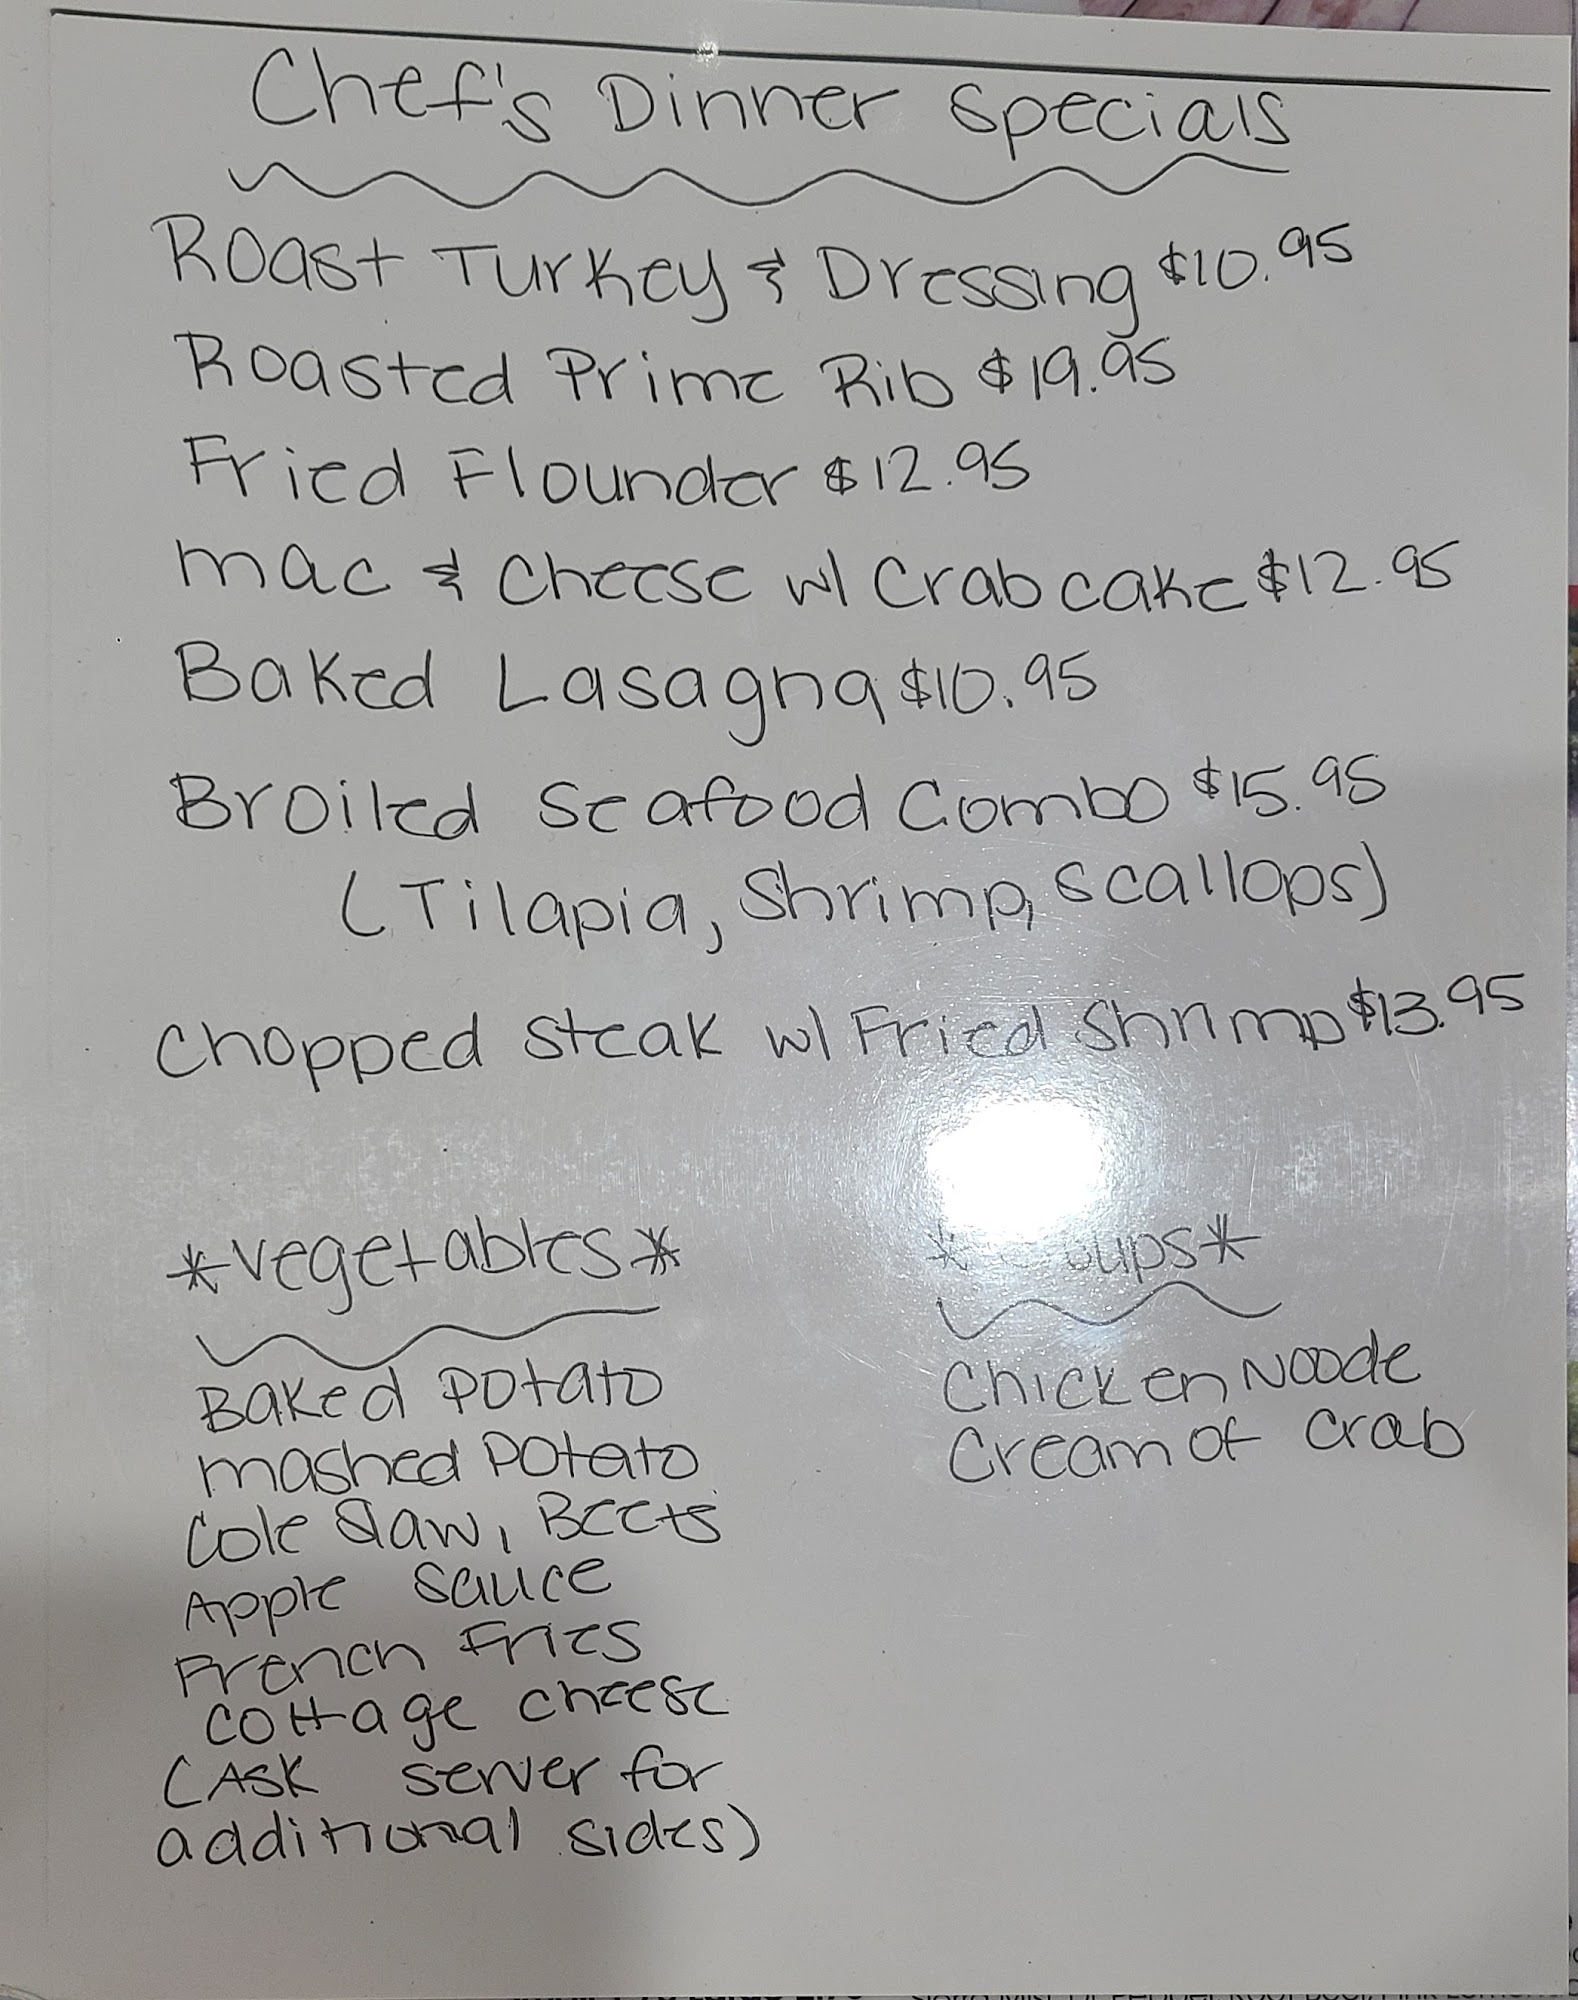 Chef's Dinner Specials
Roast Turkey & Dressing $10.95
Roasted Prime Rib $19.95
Fried Flounder $12.95
Mac & Cheese w/ Crab cake $12.95
Baked Lasagna $10.95
Broiled Seafood Combo $15.95
(Tilapia, Shrimp, Scallops)
Chopped Steak w/ Fried Shrimp $13.95
*Vegetables*
Baked Potato
Mashed Potato
Cole Slaw, Beets
Apple Sauce
French Fries
Cottage Cheese
(Ask server for
additional sides)
*Soups*
Chicken Noode
Cream of Crab